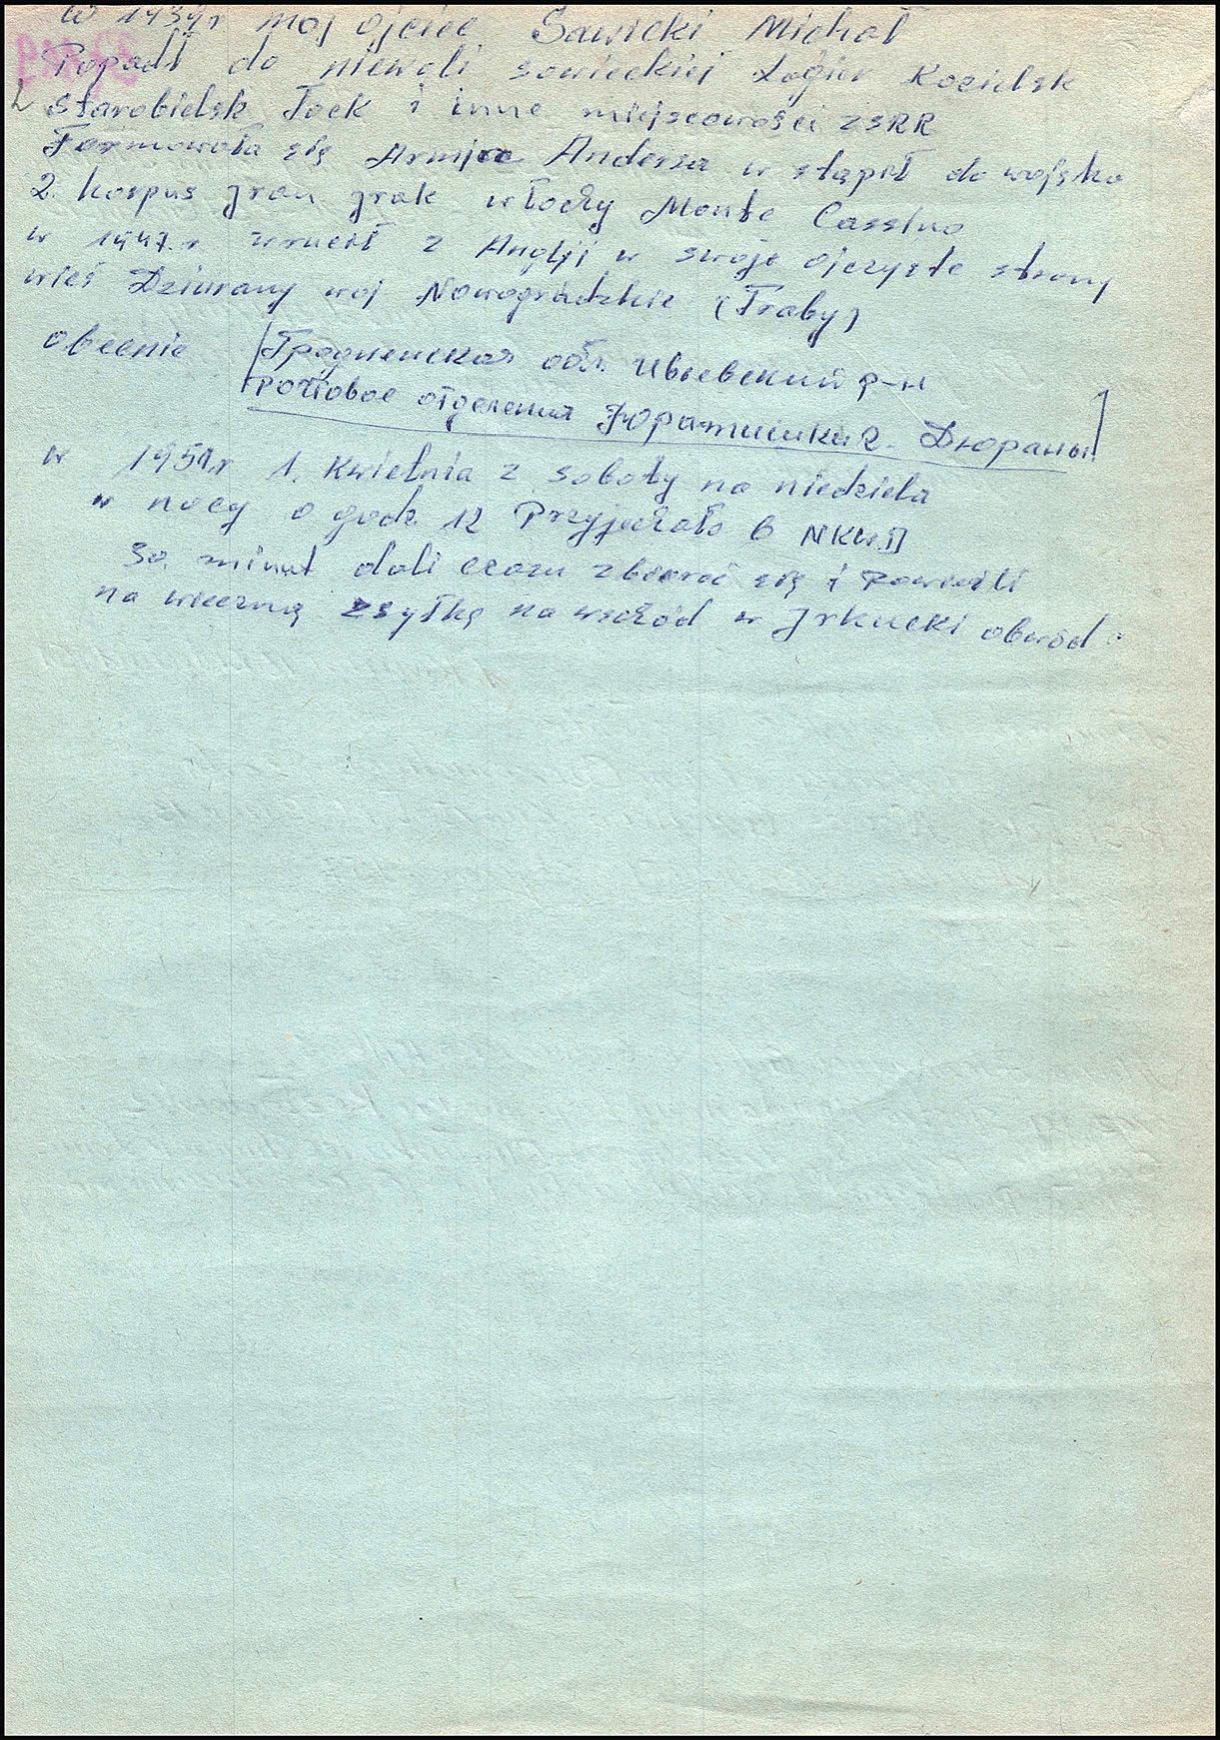 W 1939r moj ojciec Sawicki Michał
Popadł do niewoli sowieckiej Łagier Kozielsk
Starobielsk Tock i inne miejscowości ZSRR
Formowała się Armija Andersa w stąpił do wojska
2. korpus jran jrak włochy Monte Cassino
w 1947.r wrucił z Anglji w swoje ojczyste strony
wieś Dziurany woj Nowogrudzkie (Traby)
obecnie Гродненская обл. Ивьевский р-н
почтовое отделения Юратишки 2. Дюраны
w 1951r 1. Kwietnia z soboty na niedziela
w nocy o godz. 12 Przyjechało 6 NKWD
30 minut dali czasu zbierać się i Powieźli
na wieczną zsyłkę na wschód w Jrkucki obwód.